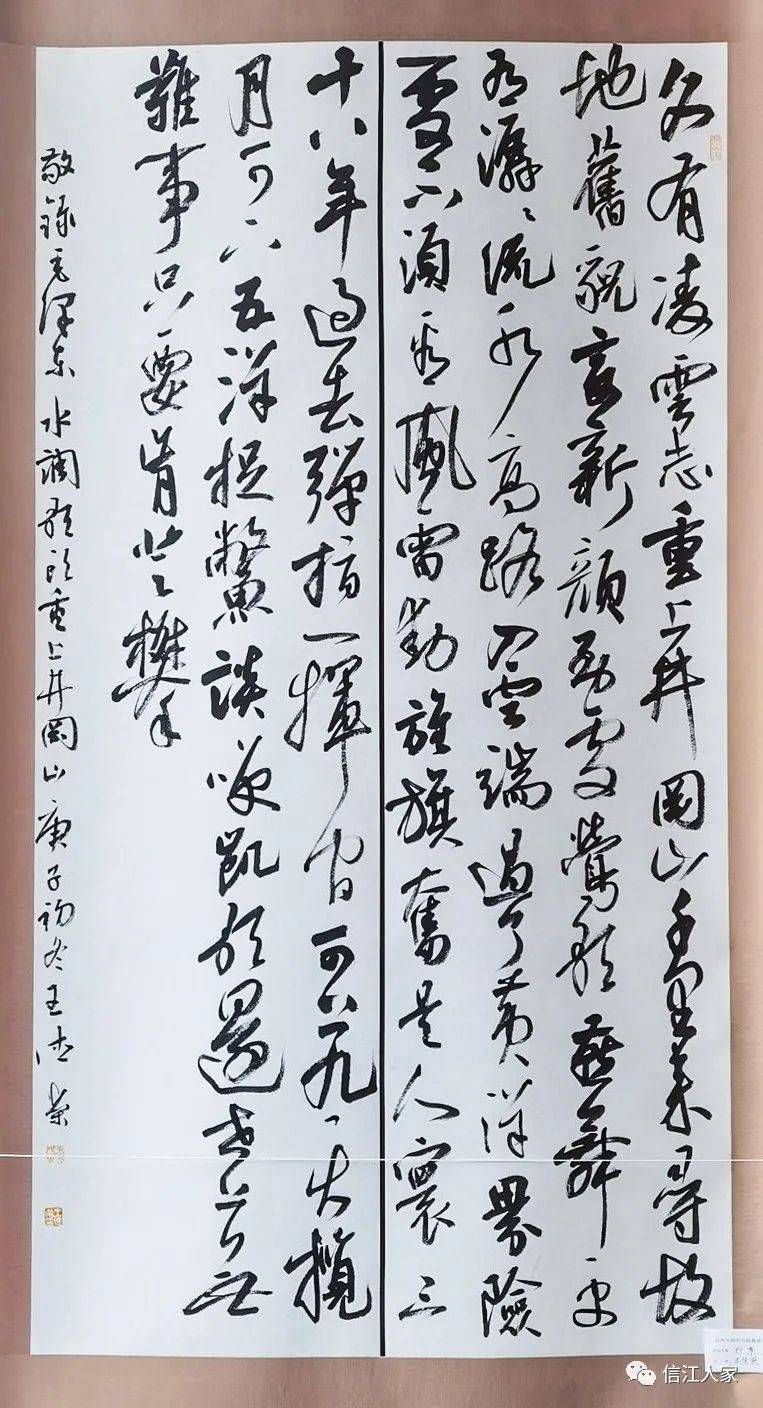 久有凌雲志重上井岡山千里來尋故
地舊貌變新顏到處鶯歌燕舞更
有潺々流水高路入雲端過了黃洋界險
處不須看風雷動旌旗奮是人寰三
十八年過去彈指一揮間可上九天攬
月可下五洋捉鱉談笑凱歌還世上無
難事只要肯登攀
敬錄毛澤東水調歌頭重上井岡山庚子初冬王
信江人家